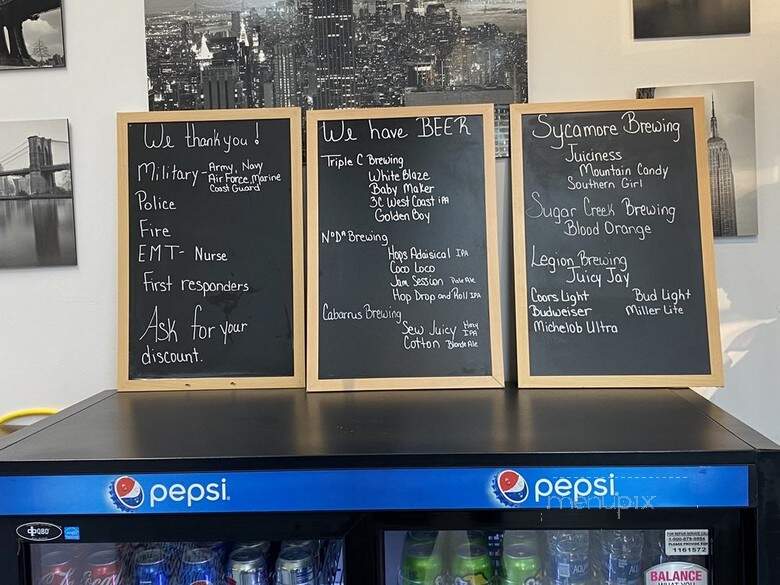 We thank you !
Military - Army, Navy
Air Force, Marine
Coast Guard
Police
Fire
EMT - Nurse
First responders
Ask for your
discount.
We have BEER
Triple C Brewing
White Blaze
Baby Maker
3C West Coast IPA
Golden Boy
NoDa Brewing
Hops Adaisical IPA
Coco Loco
Jam Session Pale Ale
Hop Drop and Roll IPA
Cabarrus Brewing
Sew Juicy Hazy IPA
Cotton Blonde Ale
Sycamore Brewing
Juiciness
Mountain Candy
Southern Girl
Sugar Creek Brewing
Blood Orange
Legion Brewing
Juicy Jay
Coors Light Bud Light
Budweiser Miller Lite
Michelob Ultra
pepsi pepsi
menupix
1161572
BALANCE
WHAT YOU